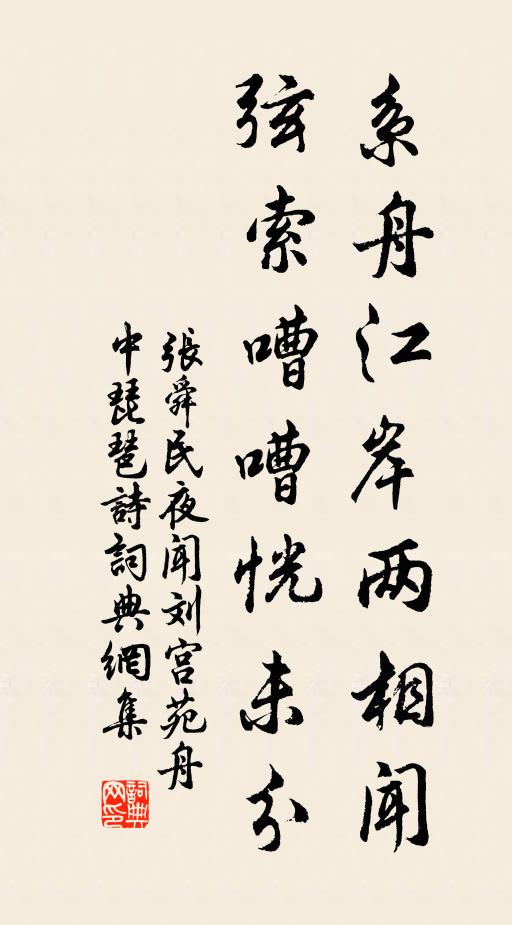 系舟江岸两相闻
弦索嘈嘈恍未分
張舜民夜闻刘宫苑舟
中琵琶詩詞典網集
詞典网印